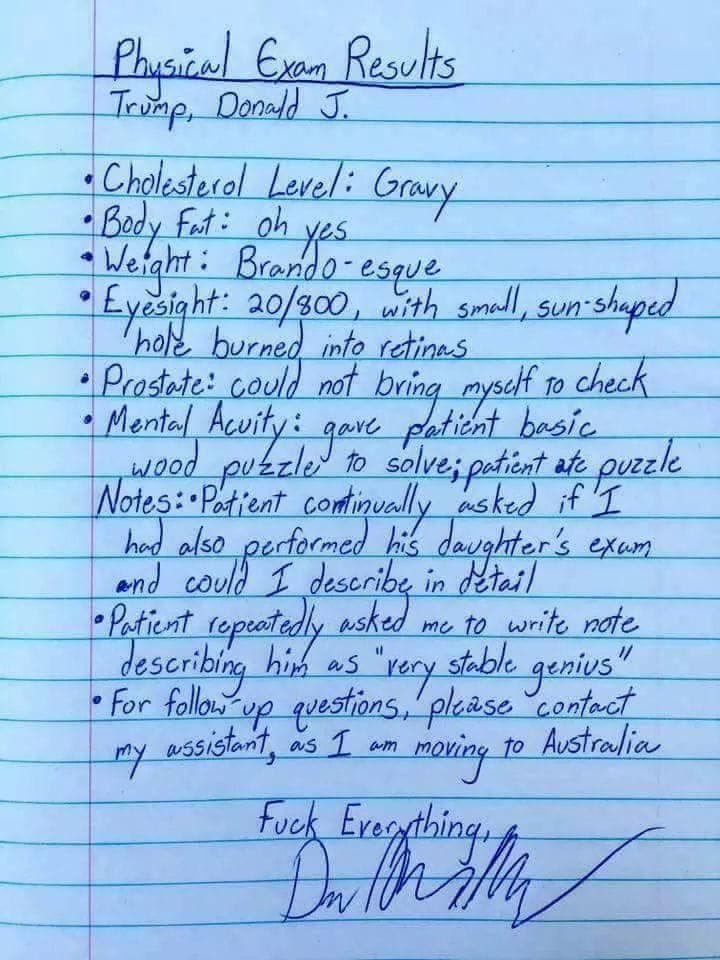 Physical Exam Results
Trump, Donald J.
• Cholesterol Level: Gravy
• Body Fat: oh yes
• Weight: Brando-esque
• Eyesight: 20/800, with small, sun-shaped
hole burned into retinas
• Prostate: could not bring myself to check
• Mental Acuity: gave patient basic
wood puzzle to solve; patient ate puzzle
Notes: • Patient continually asked if I
had also performed his daughter's exam
and could I describe in detail
• Patient repeatedly asked me to write note
describing him as "very stable genius"
• For follow-up questions, please contact
my assistant, as I am moving to Australia
Fuck Everything,